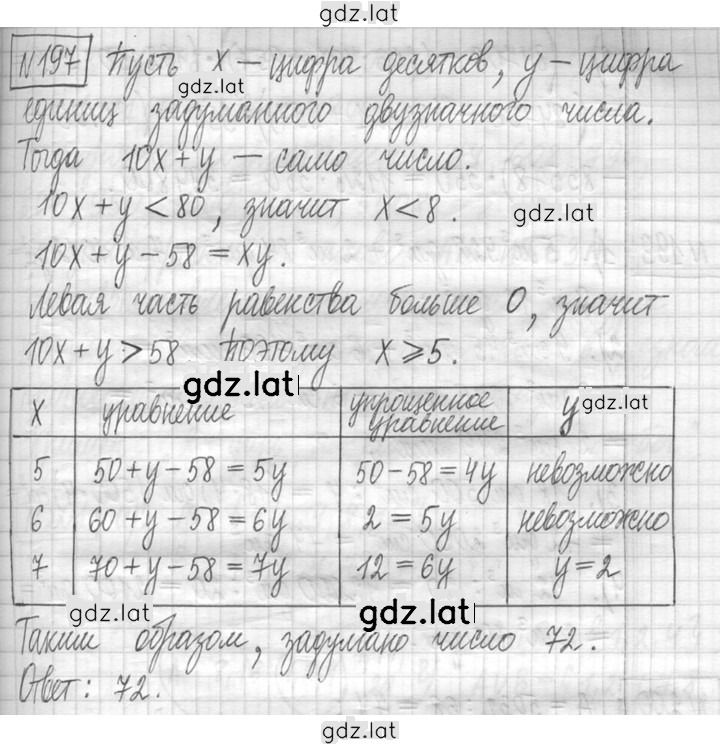 gdz.lat
N197 Пусть x – цифра десятков, y – цифра
gdz.lat
единиц задуманного двузначного числа.
Тогда 10x+y – само число.
10x+y<80, значит x<8.
gdz.lat
10x+y–58=xy.
Левая часть равенства больше 0, значит
10x+y>58. Поэтому x⩾5.
gdz.lat
x уравнение упрощенное уравнение y
gdz.lat
5 50+y–58=5y 50–58=4y невозможно
6 60+y–58=6y 2=5y невозможно
7 70+y–58=7y 12=6y y=2
gdz.lat gdz.lat
Таким образом, задумано число 72.
Ответ: 72.
gdz.lat